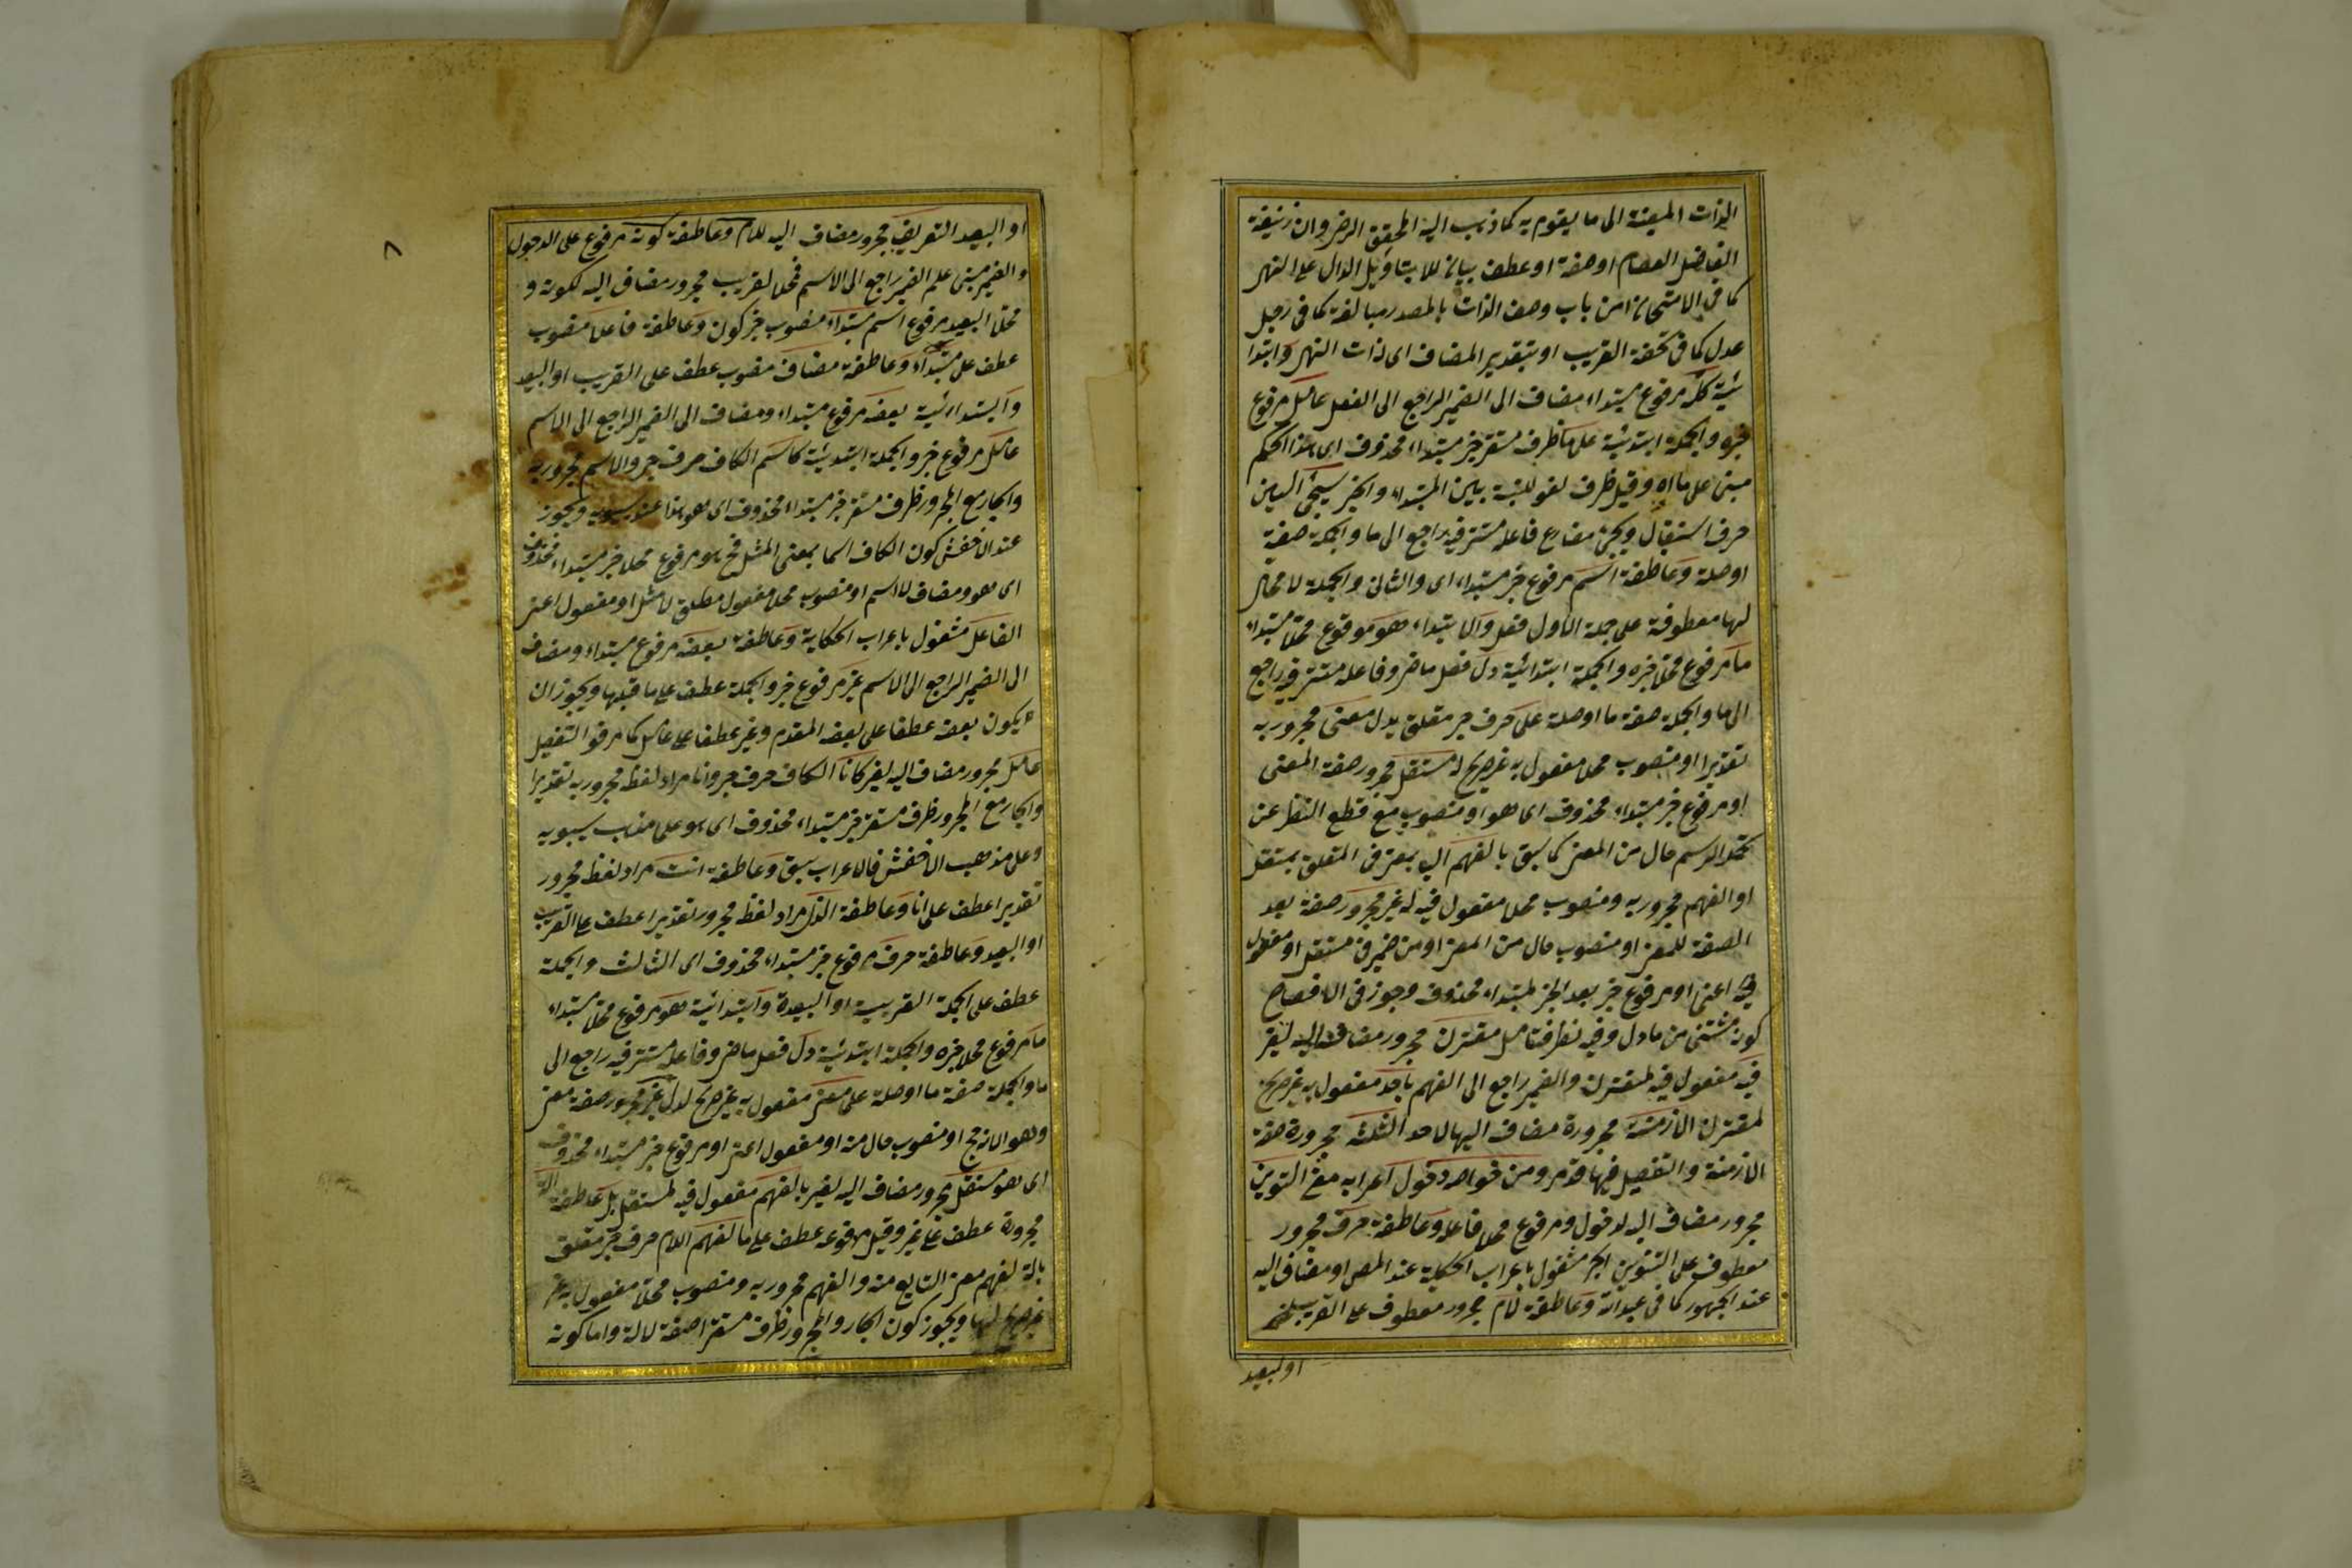 الذات المعينة الى ما يقوم به كما ذهب اليه المحقق الرضى وان زيفه
الفاضل العصام او صفة او عطف بيان للابتأويل الدال على النهر
كما فى الامتحان من باب وصف الذات بالمصدر مبالغة كما فى رجل
عدل كما فى تحفة القريب او بتقدير المضاف اى ذات النهر وابتدا
ئية كل مرفوع مبتداء مضاف الى الضمير الراجع الى الفعل عامل مرفوع
خبره والجملة ابتدئية على ما ظرف مستقر خبر مبتداء محذوف اى هذا الحكم
مبنى على ما اه وقيل ظرف لغو للنسبة بين المبتداء والخبر سيجئ السين
حرف استقبال ويجئ مضارع فاعله مستتر فيه راجع الى ما والجملة صفة
او صلة وعاطفة اسم مرفوع خبر مبتداء اى والثانى والجملة لا محل
لها معطوفة على جملة الاول فعل والابتداء هو مرفوع محلا مبتداء
ما مرفوع محلا خبره والجملة ابتدائية دل فعل ماض وفاعله مستتر فيه راجع
الى ما والجملة صفة ما او صلة على حرف جر متعلق بدل معنى مجرور به
تقديرا او منصوب محلا مفعول به غير صريح له مستقل مجرور صفة المعنى
او مرفوع خبر مبتداء محذوف اى هو او منصوب مع قطع النظر عن
تحمل الرسم حال من المعنى كما سبق بالفهم الباء بمعنى فى المتعلق بمستقل
او الفهم مجرور به ومنصوب محلا مفعول فيه له غير مجرور صفة بعد
الصفة للمعنى او منصوب حال من المعنى او من ضمير فى مستقل او مفعول
فيه اعنى او مرفوع خبر بعد الخبر لمبتداء محذوف وجوز فى الافصاح
كونه مستثنى من ما دل وفيه نظر فتامل مقترن مجرور مضاف اليه لغير
فيه مفعول فيه لمقترن والضمير راجع الى الفهم باحد مفعول به غير صريح
لمقترن الازمنة مجرورة مضاف اليها لاحد الثلثة مجرورة صفة
الازمنة والتفصيل فيها قد مر ومن خواصه دخول اعرابه مع التنوين
مجرور مضاف اليه لدخول ومرفوع محلا فاعله وعاطفة حرف مجرور
معطوف على التنوين الجر مشغول باعراب الحكاية عند المص او مضاف اليه
عند الجمهور كما فى عبدالله وعاطفة لام مجرور معطوف على القريب
او البعيد
او البعيد التعريف مجرور مضاف اليه للام وعاطفة كونه مرفوع على الدخول
والضمير مبنى علم الضمير راجع الى الاسم فمحله القريب مجرور مضاف اليه لكونه و
محله البعيد مرفوع اسم مبتداء منصوب خبر كون وعاطفة فاعلا منصوب
عطف على مبتداء وعاطفة مضاف منصوب عطف على القريب او البعيد
وابتداءئية بعضه مرفوع مبتداء ومضاف الى الضمير الراجع الى الاسم
عامل مرفوع خبر والجملة ابتدئية كاسم الكاف حرف جر والاسم مجرور به
والجار مع المجرور ظرف مستقر خبر مبتداء محذوف اى هو هذا عند سيبويه ويجوز
عند الاخفش كون الكاف اسما بمعنى المثل فح هو مرفوع محلا خبر مبتداء محذوف
اى هو ومضاف لاسم او منصوب محلا مفعول مطلق لامثل او مفعول اعنى
الفاعل مشغول باعراب الحكاية وعاطفة بعضه مرفوع مبتداء ومضاف
الى الضمير الراجع الى الاسم غير مرفوع خبر والجملة عطف على ما قبلها ويجوز ان
يكون بعضه عطفا على بعضه المقدم وغير عطفا على عامل كما مر فى التفصيل
عامل مجرور مضاف اليه لغير كانا الكاف حرف جر وانا مراد لفظه مجرور به تقديرا
والجار مع المجرور ظرف مستقر خبر مبتداء محذوف اى هو على مذهب سيبويه
وعلى مذهب الاخفش فالاعراب سبق وعاطفة انت مراد لفظ مجرور
تقديرا عطف على انا وعاطفة الذى مراد لفظه مجرور تقديرا عطف على القريب
او البعيد وعاطفة حرف مرفوع خبر مبتداء محذوف اى الثالث والجملة
عطف على الجملة القريبة او البعيدة وابتدائية هو مرفوع محلا مبتداء
ما مرفوع محلا خبره والجملة ابتدئية دل فعل ماض وفاعله مستتر فيه راجع الى
ما والجملة صفة ما او صلة على معنى مفعول به غير صريح لدل غير مجرور صفة معنى
وهو الارجح او منصوب حال منه او مفعول اعنى او مرفوع خبر مبتداء محذوف
اى هو مستقل مجرور مضاف اليه لغير بالفهم مفعول فيه لمستقل بل عاطفة الة
مجرورة عطف على غير وقيل مرفوعة عطف على ما لفهم اللام حرف جر متعلق
بالة لفهم معنى التابع منه والفهم مجرور به ومنصوب محلا مفعول به غير
غير صريح لها ويجوز كون الجار والمجرور ظرف مستقرا صفة لالة واما كونه